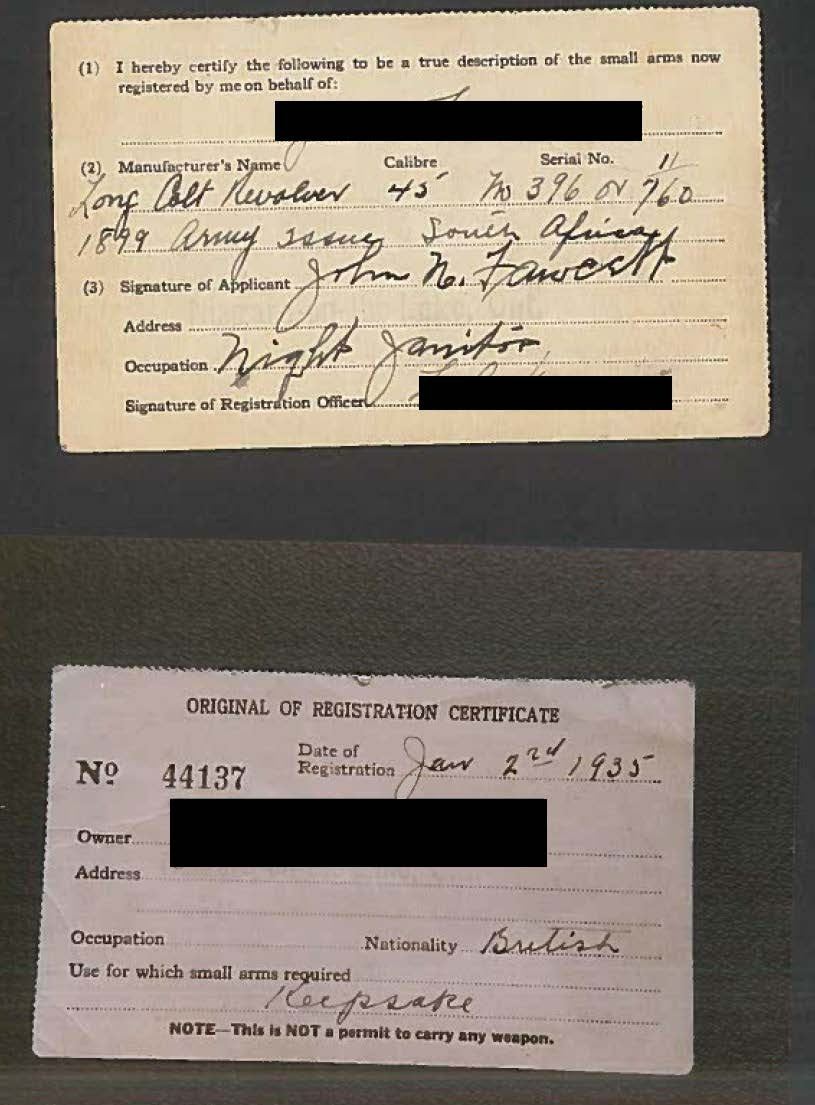 (1) I hereby certify the following to be a true description of the small arms now
registered by me on behalf of:
(2) Manufacturer's Name Calibre Serial No. 11
Long Colt Revolver 45 No 396 or 760
1899 Army issue South Africa
(3) Signature of Applicant John N. Fawcett
Address
Occupation Night Janitor
Signature of Registration Officer
ORIGINAL OF REGISTRATION CERTIFICATE
Date of
Nº 44137 Registration Jan 2nd 1935
Owner
Address
Occupation Nationality British
Use for which small arms required
Keepsake
NOTE—This is NOT a permit to carry any weapon.